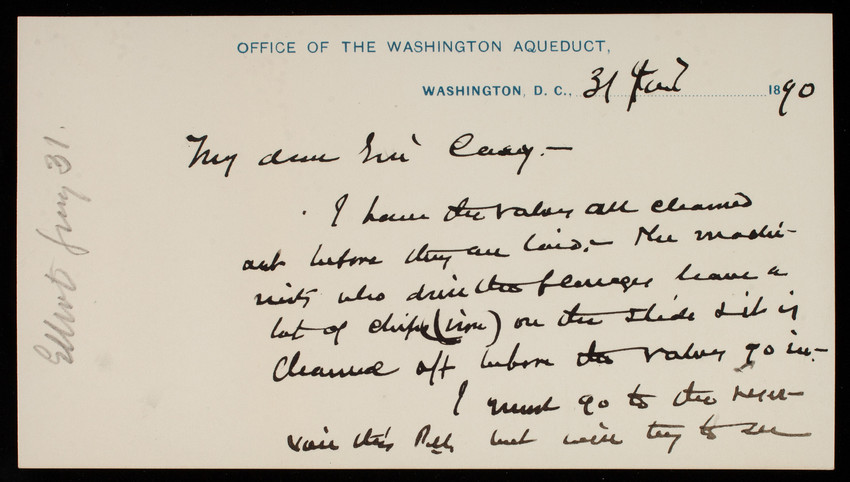 OFFICE OF THE WASHINGTON AQUEDUCT,
WASHINGTON, D. C., 31 Jany 1890
My dear Genl Casey. —
I have the valves all cleaned
out before they are laid. — The machi-
nists who drill the flanges leave a
lot of chips (iron) on the slide & it is
cleaned off before the valves go in. —
I must go to the reser-
voir this but will try to see
Elliot Jany 31.